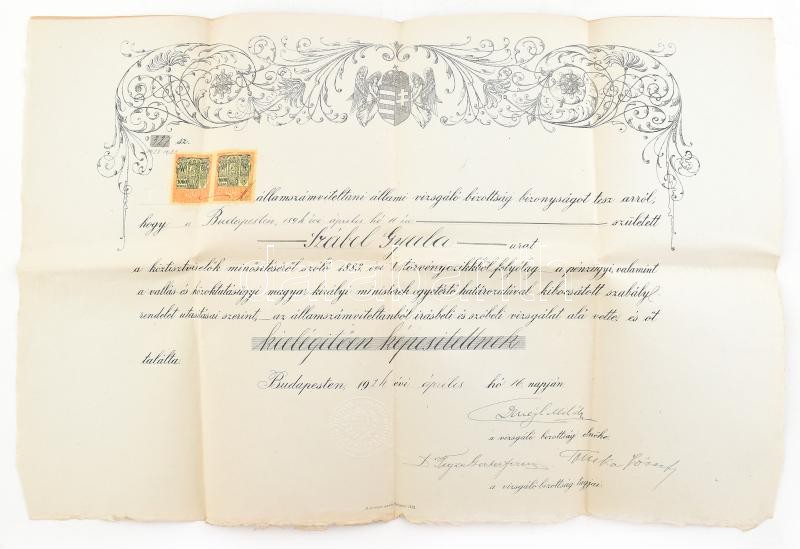 sz.
Az államszámvitéltani állami vizsgáló bizottság bizonyságot tesz arról,
hogy a Budapesten, 1894 évi április hó én született
Szábel Gyula urat
a köztisztviselők minősítéséről szóló 1883. évi I. törvényczikktől folyólag a pénzügyi, valamint
a vallás és közoktatásügyi magyar királyi ministerek egyetértő határozatával kibocsátott szabály-
rendelet utasításai szerint, az államszámvitéltanból írásbeli és szóbeli vizsgálat alá vette, és őt
kielégitően képesitettnek
találta.
Budapesten, 1924 évi április hó 16 napján
a vizsgáló bizottság Elnöke.
József
a vizsgáló bizottság tagjai.